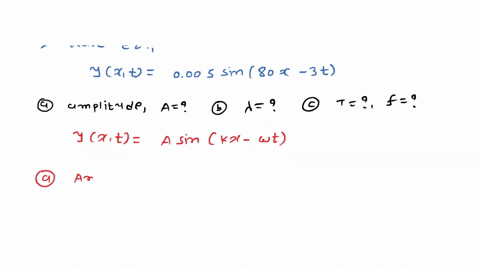 y(x,t) = 0.005 sin(80x - 3t)
ⓐ amplitude, A=? ⓑ λ=? ⓒ T=?, f=?
y(x,t) = A sin(kx - ωt)
ⓐ Am